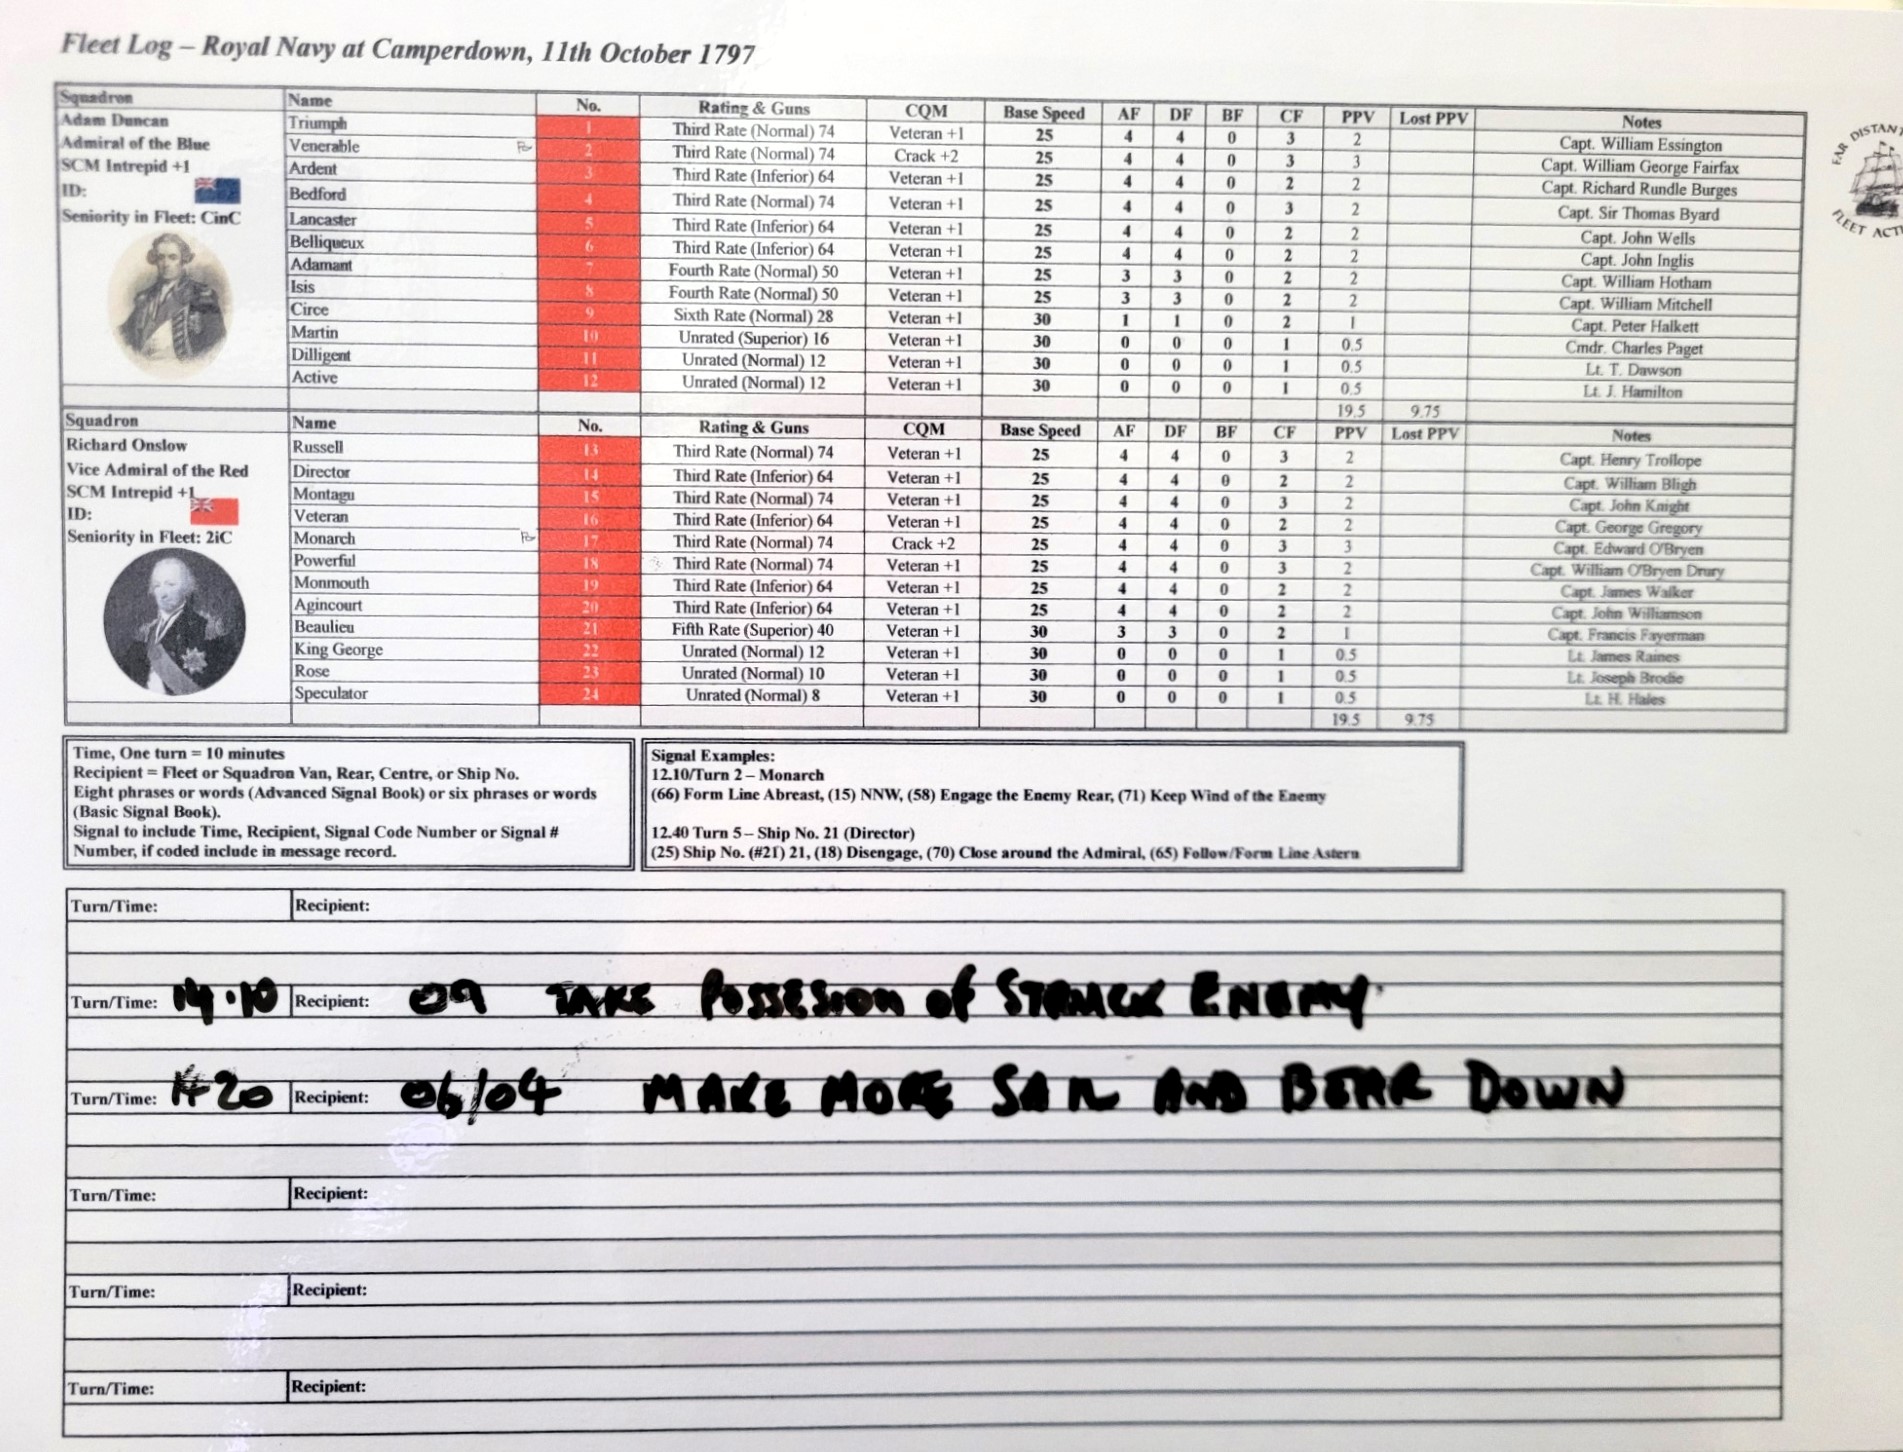 Fleet Log – Royal Navy at Camperdown, 11th October 1797
Squadron Name No. Rating & Guns CQM Base Speed AF DF BF CF PPV Lost PPV Notes
Adam Duncan
Admiral of the Blue
SCM Intrepid +1
ID:
Seniority in Fleet: CinC
Triumph 1 Third Rate (Normal) 74 Veteran +1 25 4 4 0 3 2 Capt. William Essington
Venerable 2 Third Rate (Normal) 74 Crack +2 25 4 4 0 3 3 Capt. William George Fairfax
Ardent 3 Third Rate (Inferior) 64 Veteran +1 25 4 4 0 2 2 Capt. Richard Rundle Burges
Bedford 4 Third Rate (Normal) 74 Veteran +1 25 4 4 0 3 2 Capt. Sir Thomas Byard
Lancaster 5 Third Rate (Inferior) 64 Veteran +1 25 4 4 0 2 2 Capt. John Wells
Belliqueux 6 Third Rate (Inferior) 64 Veteran +1 25 4 4 0 2 2 Capt. John Inglis
Adamant 7 Fourth Rate (Normal) 50 Veteran +1 25 3 3 0 2 2 Capt. William Hotham
Isis 8 Fourth Rate (Normal) 50 Veteran +1 25 3 3 0 2 2 Capt. William Mitchell
Circe 9 Sixth Rate (Normal) 28 Veteran +1 30 1 1 0 2 1 Capt. Peter Halkett
Martin 10 Unrated (Superior) 16 Veteran +1 30 0 0 0 1 0.5 Cmdr. Charles Paget
Dilligent 11 Unrated (Normal) 12 Veteran +1 30 0 0 0 1 0.5 Lt. T. Dawson
Active 12 Unrated (Normal) 12 Veteran +1 30 0 0 0 1 0.5 Lt. J. Hamilton
19.5 9.75
Squadron Name No. Rating & Guns CQM Base Speed AF DF BF CF PPV Lost PPV Notes
Richard Onslow
Vice Admiral of the Red
SCM Intrepid +1
ID:
Seniority in Fleet: 2iC
Russell 13 Third Rate (Normal) 74 Veteran +1 25 4 4 0 3 2 Capt. Henry Trollope
Director 14 Third Rate (Inferior) 64 Veteran +1 25 4 4 0 2 2 Capt. William Bligh
Montagu 15 Third Rate (Normal) 74 Veteran +1 25 4 4 0 3 2 Capt. John Knight
Veteran 16 Third Rate (Inferior) 64 Veteran +1 25 4 4 0 2 2 Capt. George Gregory
Monarch 17 Third Rate (Normal) 74 Crack +2 25 4 4 0 3 3 Capt. Edward O'Bryen
Powerful 18 Third Rate (Normal) 74 Veteran +1 25 4 4 0 3 2 Capt. William O'Bryen Drury
Monmouth 19 Third Rate (Inferior) 64 Veteran +1 25 4 4 0 2 2 Capt. James Walker
Agincourt 20 Third Rate (Inferior) 64 Veteran +1 25 4 4 0 2 2 Capt. John Williamson
Beaulieu 21 Fifth Rate (Superior) 40 Veteran +1 30 3 3 0 2 1 Capt. Francis Fayerman
King George 22 Unrated (Normal) 12 Veteran +1 30 0 0 0 1 0.5 Lt. James Raines
Rose 23 Unrated (Normal) 10 Veteran +1 30 0 0 0 1 0.5 Lt. Joseph Brodie
Speculator 24 Unrated (Normal) 8 Veteran +1 30 0 0 0 1 0.5 Lt. H. Hales
19.5 9.75
FAR DISTANT
FLEET
Time, One turn = 10 minutes
Recipient = Fleet or Squadron Van, Rear, Centre, or Ship No.
Eight phrases or words (Advanced Signal Book) or six phrases or words
(Basic Signal Book).
Signal to include Time, Recipient, Signal Code Number or Signal #
Number, if coded include in message record.
Signal Examples:
12.10/Turn 2 – Monarch
(66) Form Line Abreast, (15) NNW, (58) Engage the Enemy Rear, (71) Keep Wind of the Enemy
12.40 Turn 5 – Ship No. 21 (Director)
(25) Ship No. (#21) 21, (18) Disengage, (70) Close around the Admiral, (65) Follow/Form Line Astern
Turn/Time: Recipient:
Turn/Time: 14.10 Recipient: 09 TAKE POSSESION of STRUCK ENEMY
Turn/Time: 1420 Recipient: 06/04 MAKE MORE SAIL AND BEAR DOWN
Turn/Time: Recipient:
Turn/Time: Recipient:
Turn/Time: Recipient: